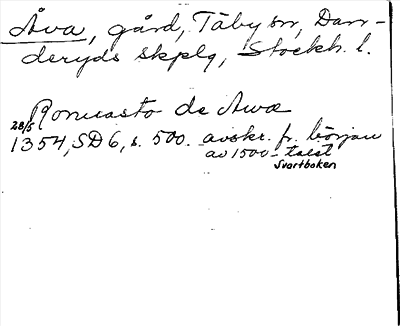 Åva, gård, Täby sn, Dan-
deryds skplg, Stockh. l.
de Awa
28/5
1354, SD 6, s. 500. avskr. fr. början
av 1500-talet
Svartboken